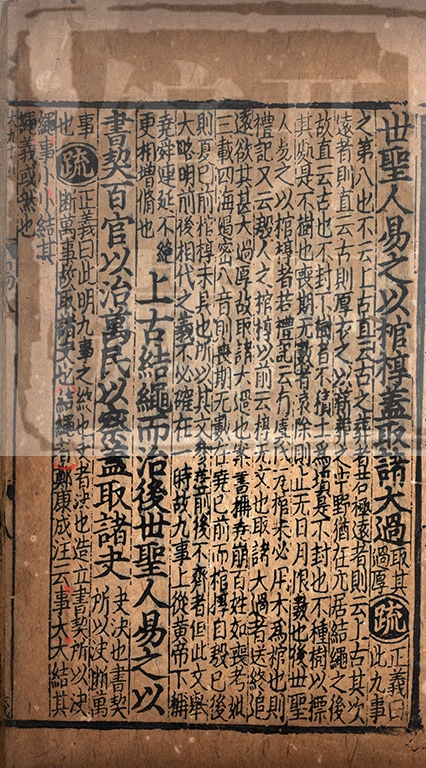 世聖人易之以棺椁蓋取諸大過
取其
過厚
疏
正義曰
此九事
之第八也不云上古直云古之葬者若極遠者則云上古其次
遠者則直云古則厚衣之以薪葬之中野猶在穴居結繩之後
故直云古也不封不樹者不積土為墳是不封也不種樹以標
其處是不樹也喪期无數者哀除則止无日月限數也後世聖
人易之以棺椁者若禮記云有虞氏瓦棺未必用木為棺也則
禮記又云殷人之棺椁以前云椁无文也取諸大過者送終追
遠欲其甚大過厚故取諸大過也案書稱堯崩百姓如喪考妣
三載四海遏密八音則喪期无數在堯已前而棺椁自殷已後
則夏已前棺椁未具也所以其文參差前後不齊者但此文舉
大略明前後相代之義不必確在一時故九事上從黃帝下稱
堯舜連延不絕
更相增脩也
上古結繩而治後世聖人易之以
書契百官以治萬民以察蓋取諸夬
夬決也書契
所以決斷萬
事
也
疏
正義曰此明九事之終也夬者決也造立書契所以決
斷萬事故取諸夬也結繩者鄭康成注云事大大結其
繩事小小結其
繩義或然也